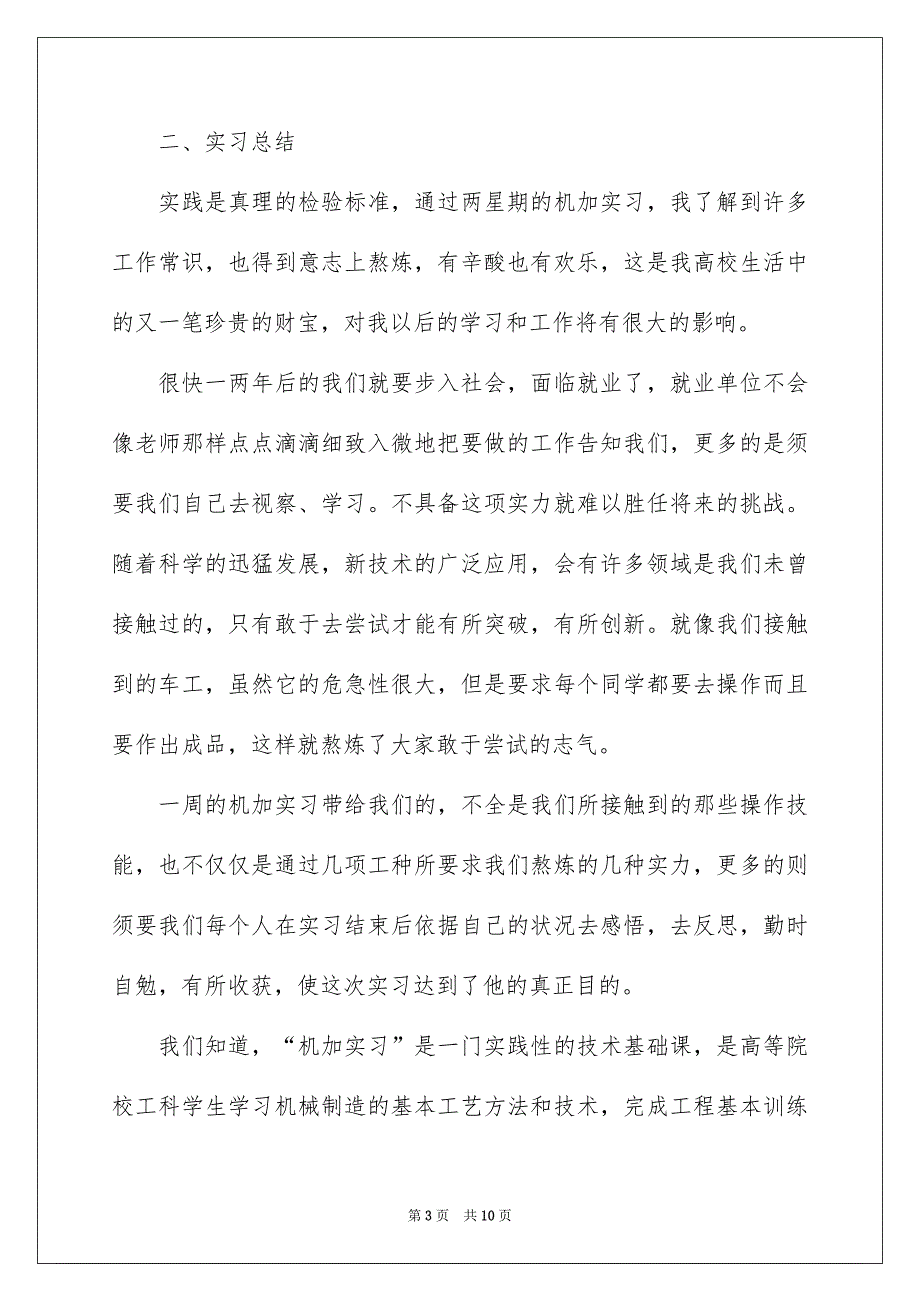 二、实习总结
实践是真理的检验标准，通过两星期的机加实习，我了解到许多
工作常识，也得到意志上熬炼，有辛酸也有欢乐，这是我高校生活中
的又一笔珍贵的财宝，对我以后的学习和工作将有很大的影响。
很快一两年后的我们就要步入社会，面临就业了，就业单位不会
像老师那样点点滴滴细致入微地把要做的工作告知我们，更多的是须
要我们自己去视察、学习。不具备这项实力就难以胜任将来的挑战。
随着科学的迅猛发展，新技术的广泛应用，会有许多领域是我们未曾
接触过的，只有敢于去尝试才能有所突破，有所创新。就像我们接触
到的车工，虽然它的危急性很大，但是要求每个同学都要去操作而且
要作出成品，这样就熬炼了大家敢于尝试的志气。
一周的机加实习带给我们的，不全是我们所接触到的那些操作技
能，也不仅仅是通过几项工种所要求我们熬炼的几种实力，更多的则
须要我们每个人在实习结束后依据自己的状况去感悟，去反思，勤时
自勉，有所收获，使这次实习达到了他的真正目的。
我们知道，“机加实习”是一门实践性的技术基础课，是高等院
校工科学生学习机械制造的基本工艺方法和技术，完成工程基本训练
第 3 页 共 10 页